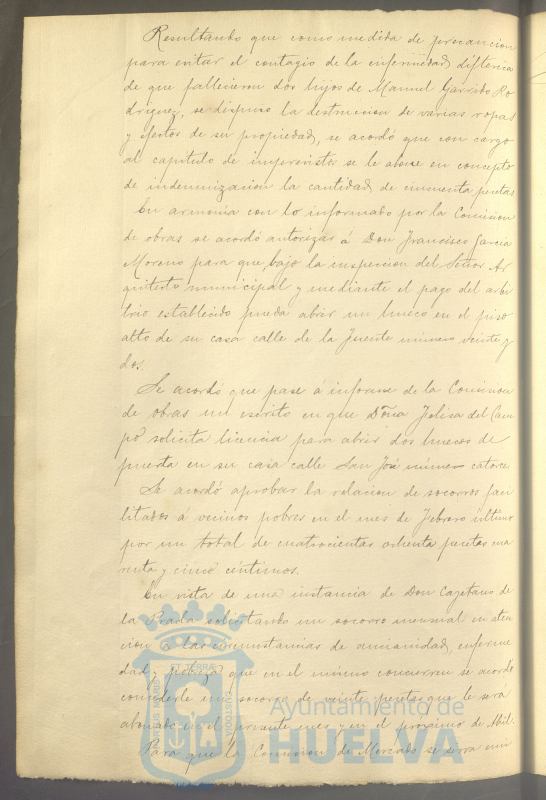 Resultando que como medida de precaucion
para evitar el contagio de la enfermedad difterica
de que fallecieron dos hijos de Manuel Garrido Ro
driguez, se dispuso la destruccion de varias ropas
y efectos de su propiedad, se acordó que con cargo
al capitulo de imprevistos se le abone en concepto
de indemnizacion la cantidad de cincuenta pesetas
En armonia con lo informado por la Comision
de obras se acordó autorizar á Don Francisco Garcia
Moreno para que bajo la inspeccion del Señor Ar
quitecto municipal y mediante el pago del arbi
trio establecido pueda abrir un hueco en el piso
alto de su casa calle de la Fuente número veinte y
dos.
Se acordó que pase á informe de la Comision
de obras un escrito en que Doña Felisa del Cam
po solicita licencia para abrir dos huecos de
puerta en su casa calle San José número catorce
Se acordó aprobar la relacion de socorros faci
litados á vecinos pobres en el mes de Febrero último
por un total de cuatrocientas ochenta pesetas cua
renta y cinco céntimos.
En vista de una instancia de Don Cayetano de
la Prada solicitando un socorro mensual en aten
cion á las circunstancias de ancianidad, enferme
dad y pobreza que en el mismo concurren se acordó
concederle un socorro de veinte pesetas que le será
abonado en el corriente mes y en el próximo de Abril.
Para que la Comision de Mercado se sirva
PORTUS MARIS
ET TERRÆ
CUSTODIA
Ayuntamiento de
HUELVA